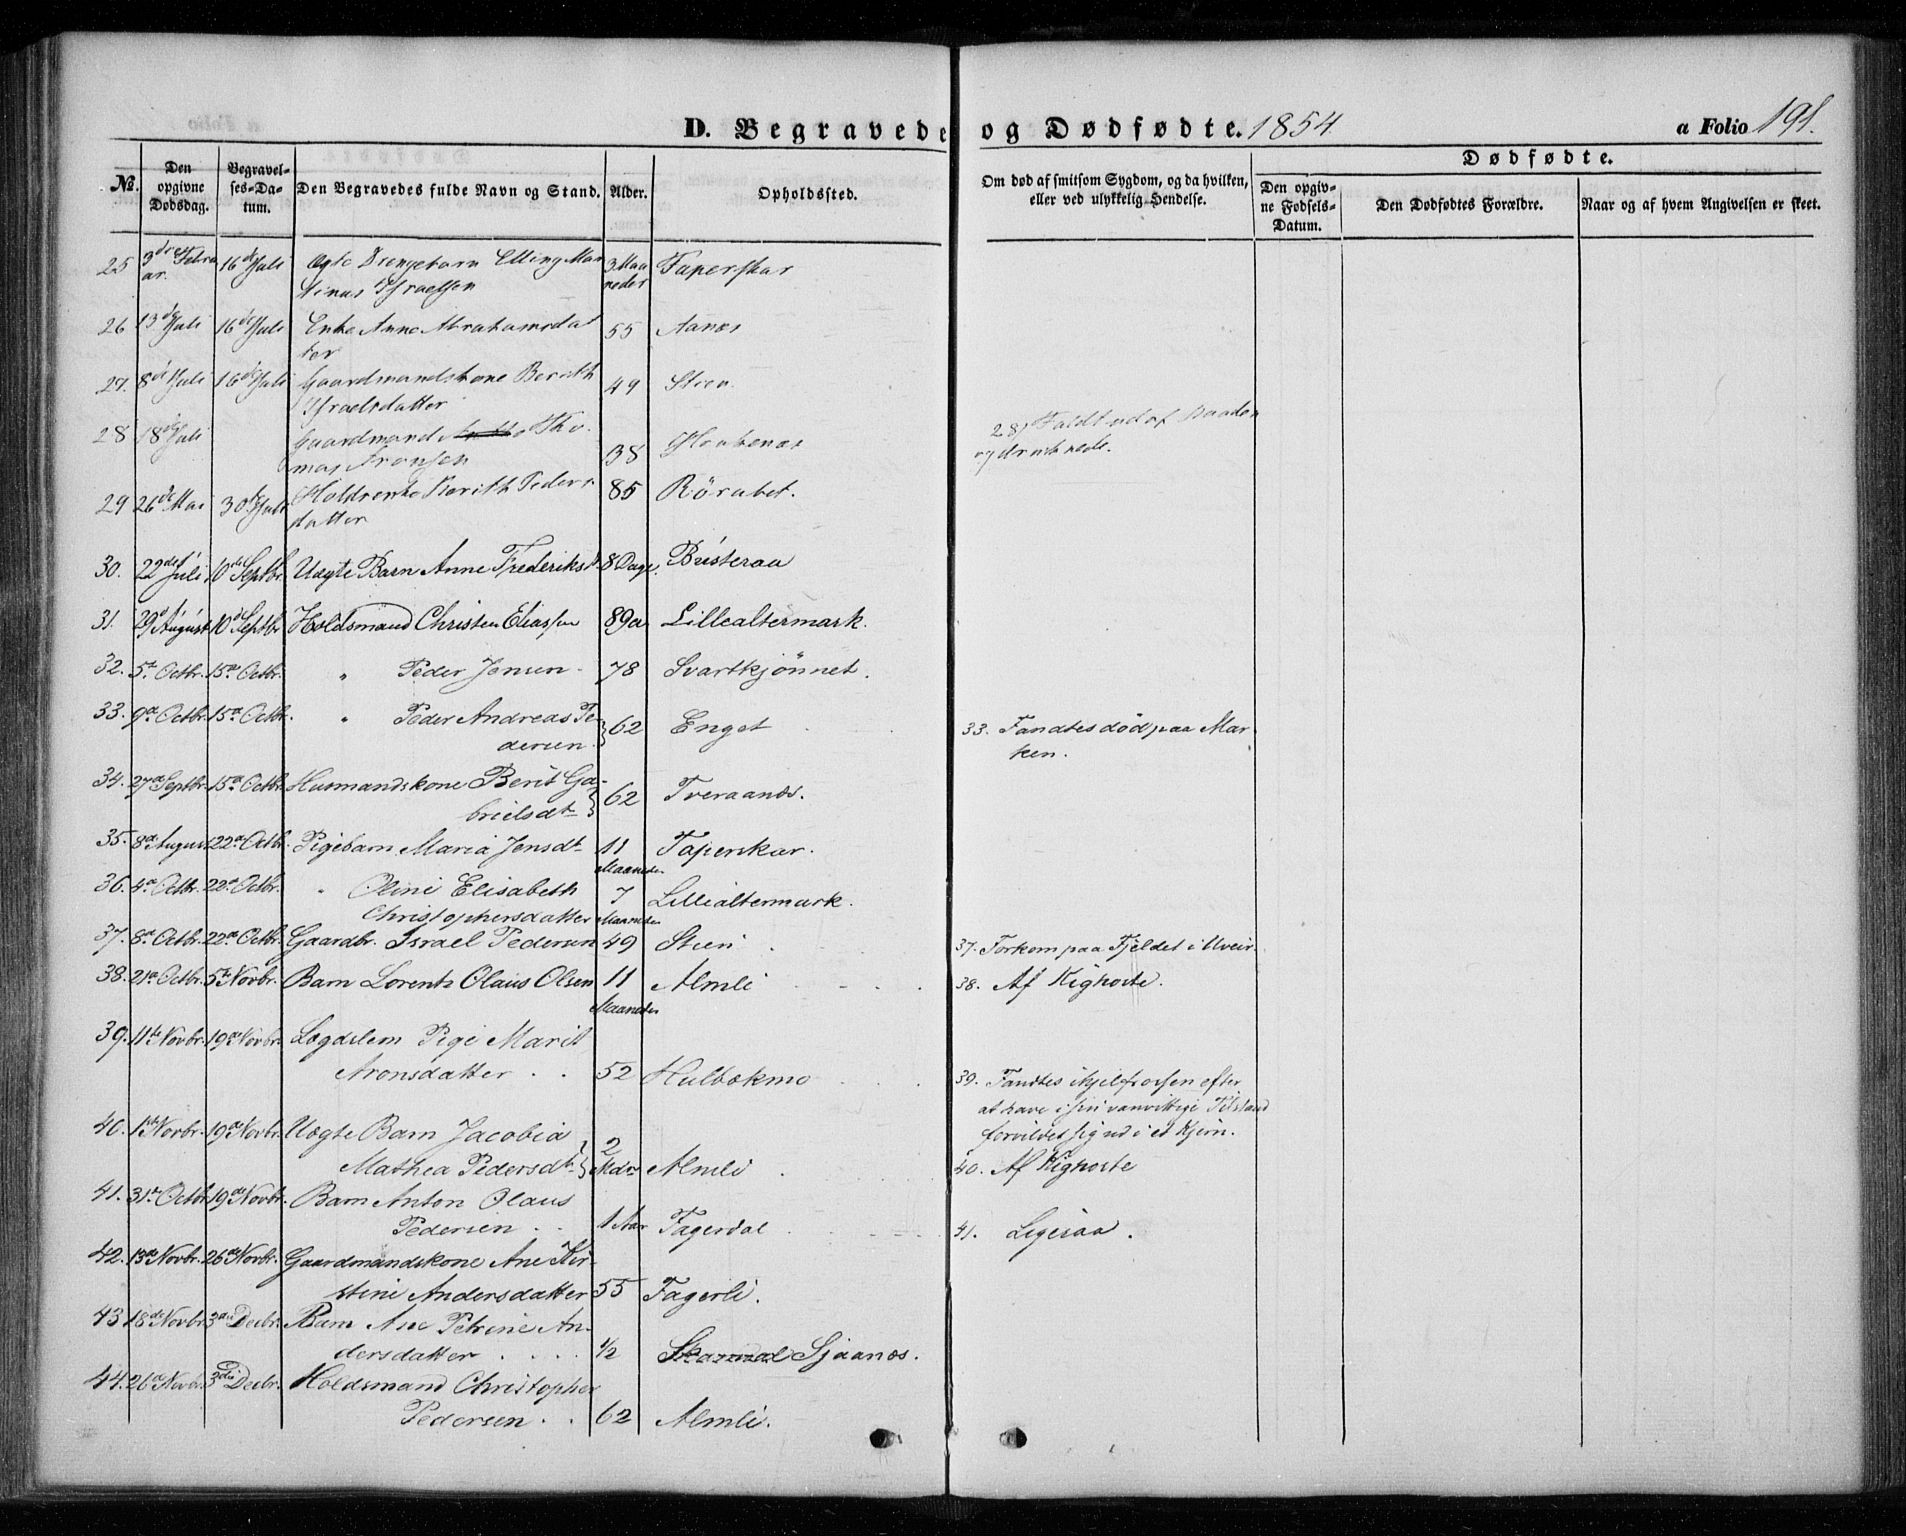 D. Begravede og Dødfødte. 1854 a Folio 191.
No. Den opgivne Dødsdag. Begravelses-Datum. Den Begravedes fulde Navn og Stand. Alder. Opholdssted. Om død af smitsom Sygdom, og da hvilken, eller ved ulykkelig Hendelse. Dødfødte.
Den opgivne Fødsels-Datum. Den Dødfødtes Forældre. Naar og af hvem Angivelsen er skeet.
25 3dre Febru 16de Juli Ægte Drengebarn Elling Mar 3 Maa Taperskar
ar. tinus Israelsen neder
26 13de Juli 16de Juli Enke Anne Abrahamsdat 55 Aanæs
ter
27. 8de Juli 16de Juli Gaardmandskone Berith 49 Stien
Israelsdatter
28 18de Juli Gaardmand Tho 28, Faldt ud af Baaden
mas Aronsen 38 og druknede.
29 26de Mai 30te Juli Holdsenke Berith Peders 85 Rörabet.
datter
30. 22de Juli 10de Septbr. Uægte Barn Anne Frederiksdt. 8 Dage. Bústeraa
31. 29d August 10de Septbr Holdsmand Christen Eliassen 89 a Lillealtermark.
32. 5te Octbr. 15de Octbr. " Peder Jensen 78 Svartkjønnet.
33. 9de Octbr. 15de Octbr. " Peder Andreas Pe- 62 Enget 33. Fandtes død paa Mar
dersen. ken.
34. 27de Septbr. 15de Octbr. Husmandskone Berit Ga- 62 Tveraanæs.
brielsdt
35. 8de August 22de Octbr. Pigebarn Maria Jensdt. 11 Taperskar.
Maaneder
36. 4de Octbr. 22de Octbr. " Oline Elisabeth 7 Lillealtermark.
Christophersdatter Maaneder
37. 8de Octbr. 22de Octbr. Gaardbr. Israel Pedersen 49 Stien 37. Forkom paa Fjeldet i Uveir.
38. 21de Octbr. 5te Novbr. Barn Lorents Olaus Olsen 11 Almli 38. Af Kighoste.
Maaneder
39. 11te Novbr. 19de Novbr. Lægdslem Pige Marit
Aronsdatter 52 Hulbækmo 39. Fandtes ihjelfrossen efter
at have i sin vanvittige Tilstand
forvildet sig ud i et Kjern.
40. 1ste Novbr. 19de Novbr. Uægte Barn Jacobia 2
Mathea Pedersdt Mdr. Almli 40. Af Kighoste
41. 31te Octbr 19de Novbr. Barn Anton Olaus
Pedersen 1 Aar Fagerdal 41. Ligesaa.
42. 13de Novbr. 26de Novbr. Gaardmandskone Ane Kir-
stine Andersdatter 55 Fagerli.
43 18de Novbr. 3die Decbr. Barn Ane Petrine An-
dersdatter 1/2 Sjaanæs.
44. 26de Novbr. 3die Decbr. Holdsmand Christopher
Pedersen 62 Almli.